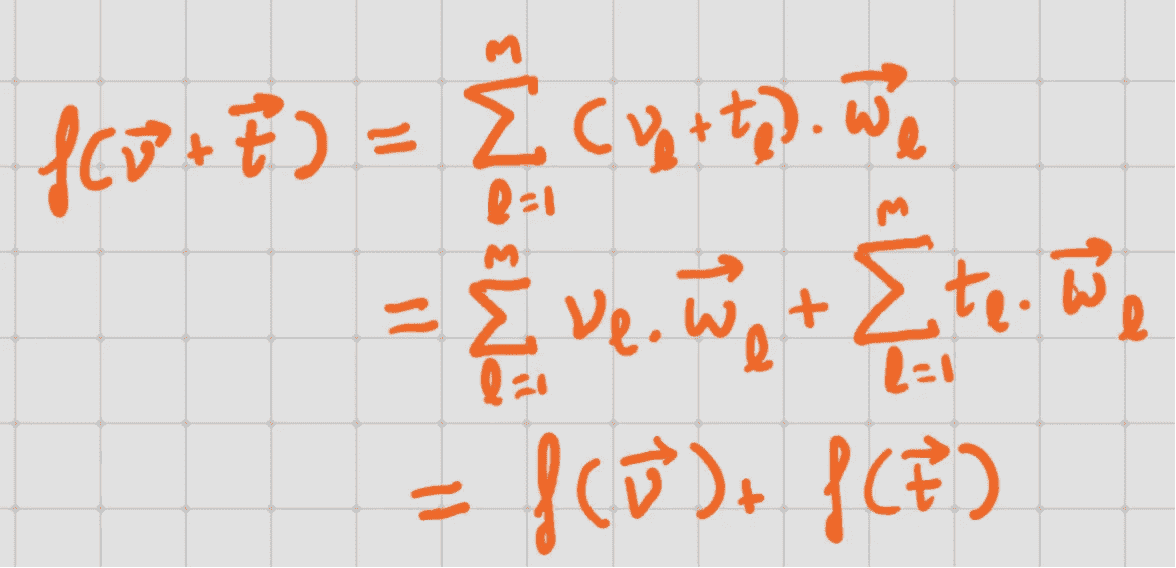 f(\vec{v} + \vec{t}) = \sum_{l=1}^{m} (v_l + t_l) \cdot \vec{w}_l
= \sum_{l=1}^{m} v_l \cdot \vec{w}_l + \sum_{l=1}^{m} t_l \cdot \vec{w}_l
= f(\vec{v}) + f(\vec{t})